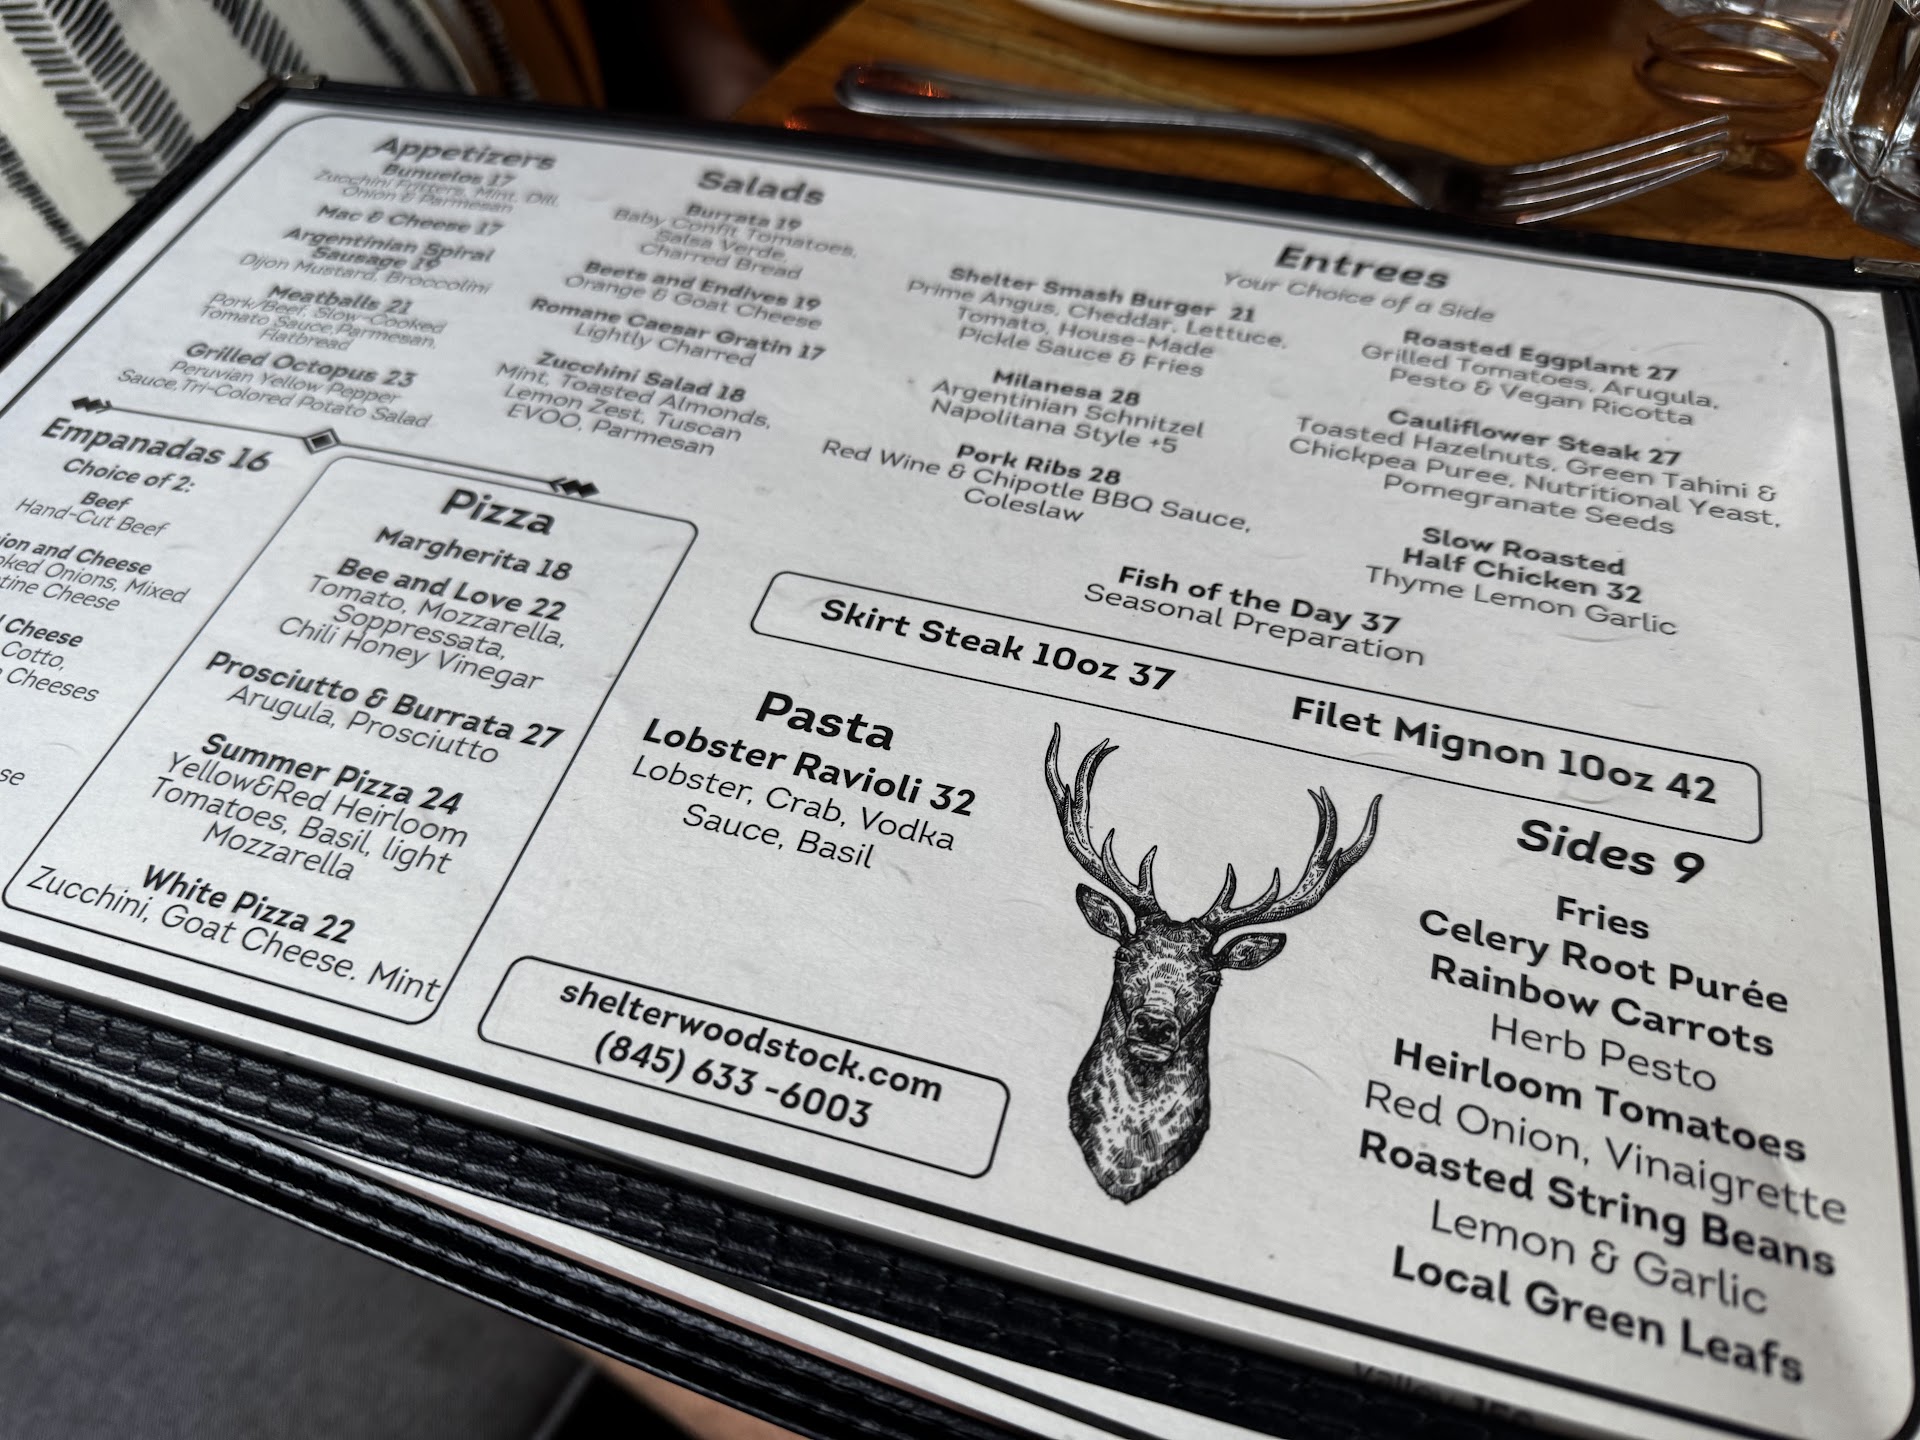 Appetizers
Bunuelos 17
Zucchini Fritters, Mint, Dill,
Onion & Parmesan
Mac & Cheese 17
Argentinian Spiral
Sausage 19
Dijon Mustard, Broccolini
Meatballs 21
Pork/Beef, Slow-Cooked
Tomato Sauce,Parmesan,
Flatbread
Grilled Octopus 23
Peruvian Yellow Pepper
Sauce,Tri-Colored Potato Salad
Empanadas 16
Choice of 2:
Beef
Hand-Cut Beef
and Cheese
Onions, Mixed
Cheese
Cheese
Cotto,
Cheeses
Salads
Burrata 19
Baby Confit Tomatoes,
Salsa Verde,
Charred Bread
Beets and Endives 19
Orange & Goat Cheese
Romane Caesar Gratin 17
Lightly Charred
Zucchini Salad 18
Mint, Toasted Almonds,
Lemon Zest, Tuscan
EVOO, Parmesan
Pizza
Margherita 18
Bee and Love 22
Tomato, Mozzarella,
Soppressata,
Chili Honey Vinegar
Prosciutto & Burrata 27
Arugula, Prosciutto
Summer Pizza 24
Yellow&Red Heirloom
Tomatoes, Basil, light
Mozzarella
White Pizza 22
Zucchini, Goat Cheese. Mint
Entrees
Your Choice of a Side
Shelter Smash Burger 21
Prime Angus, Cheddar, Lettuce,
Tomato, House-Made
Pickle Sauce & Fries
Milanesa 28
Argentinian Schnitzel
Napolitana Style +5
Pork Ribs 28
Red Wine & Chipotle BBQ Sauce,
Coleslaw
Roasted Eggplant 27
Grilled Tomatoes, Arugula,
Pesto & Vegan Ricotta
Cauliflower Steak 27
Toasted Hazelnuts, Green Tahini &
Chickpea Puree, Nutritional Yeast,
Pomegranate Seeds
Slow Roasted
Half Chicken 32
Thyme Lemon Garlic
Fish of the Day 37
Seasonal Preparation
Skirt Steak 10oz 37
Filet Mignon 10oz 42
Pasta
Lobster Ravioli 32
Lobster, Crab, Vodka
Sauce, Basil
shelterwoodstock.com
(845) 633 -6003
Sides 9
Fries
Celery Root Purée
Rainbow Carrots
Herb Pesto
Heirloom Tomatoes
Red Onion, Vinaigrette
Roasted String Beans
Lemon & Garlic
Local Green Leafs